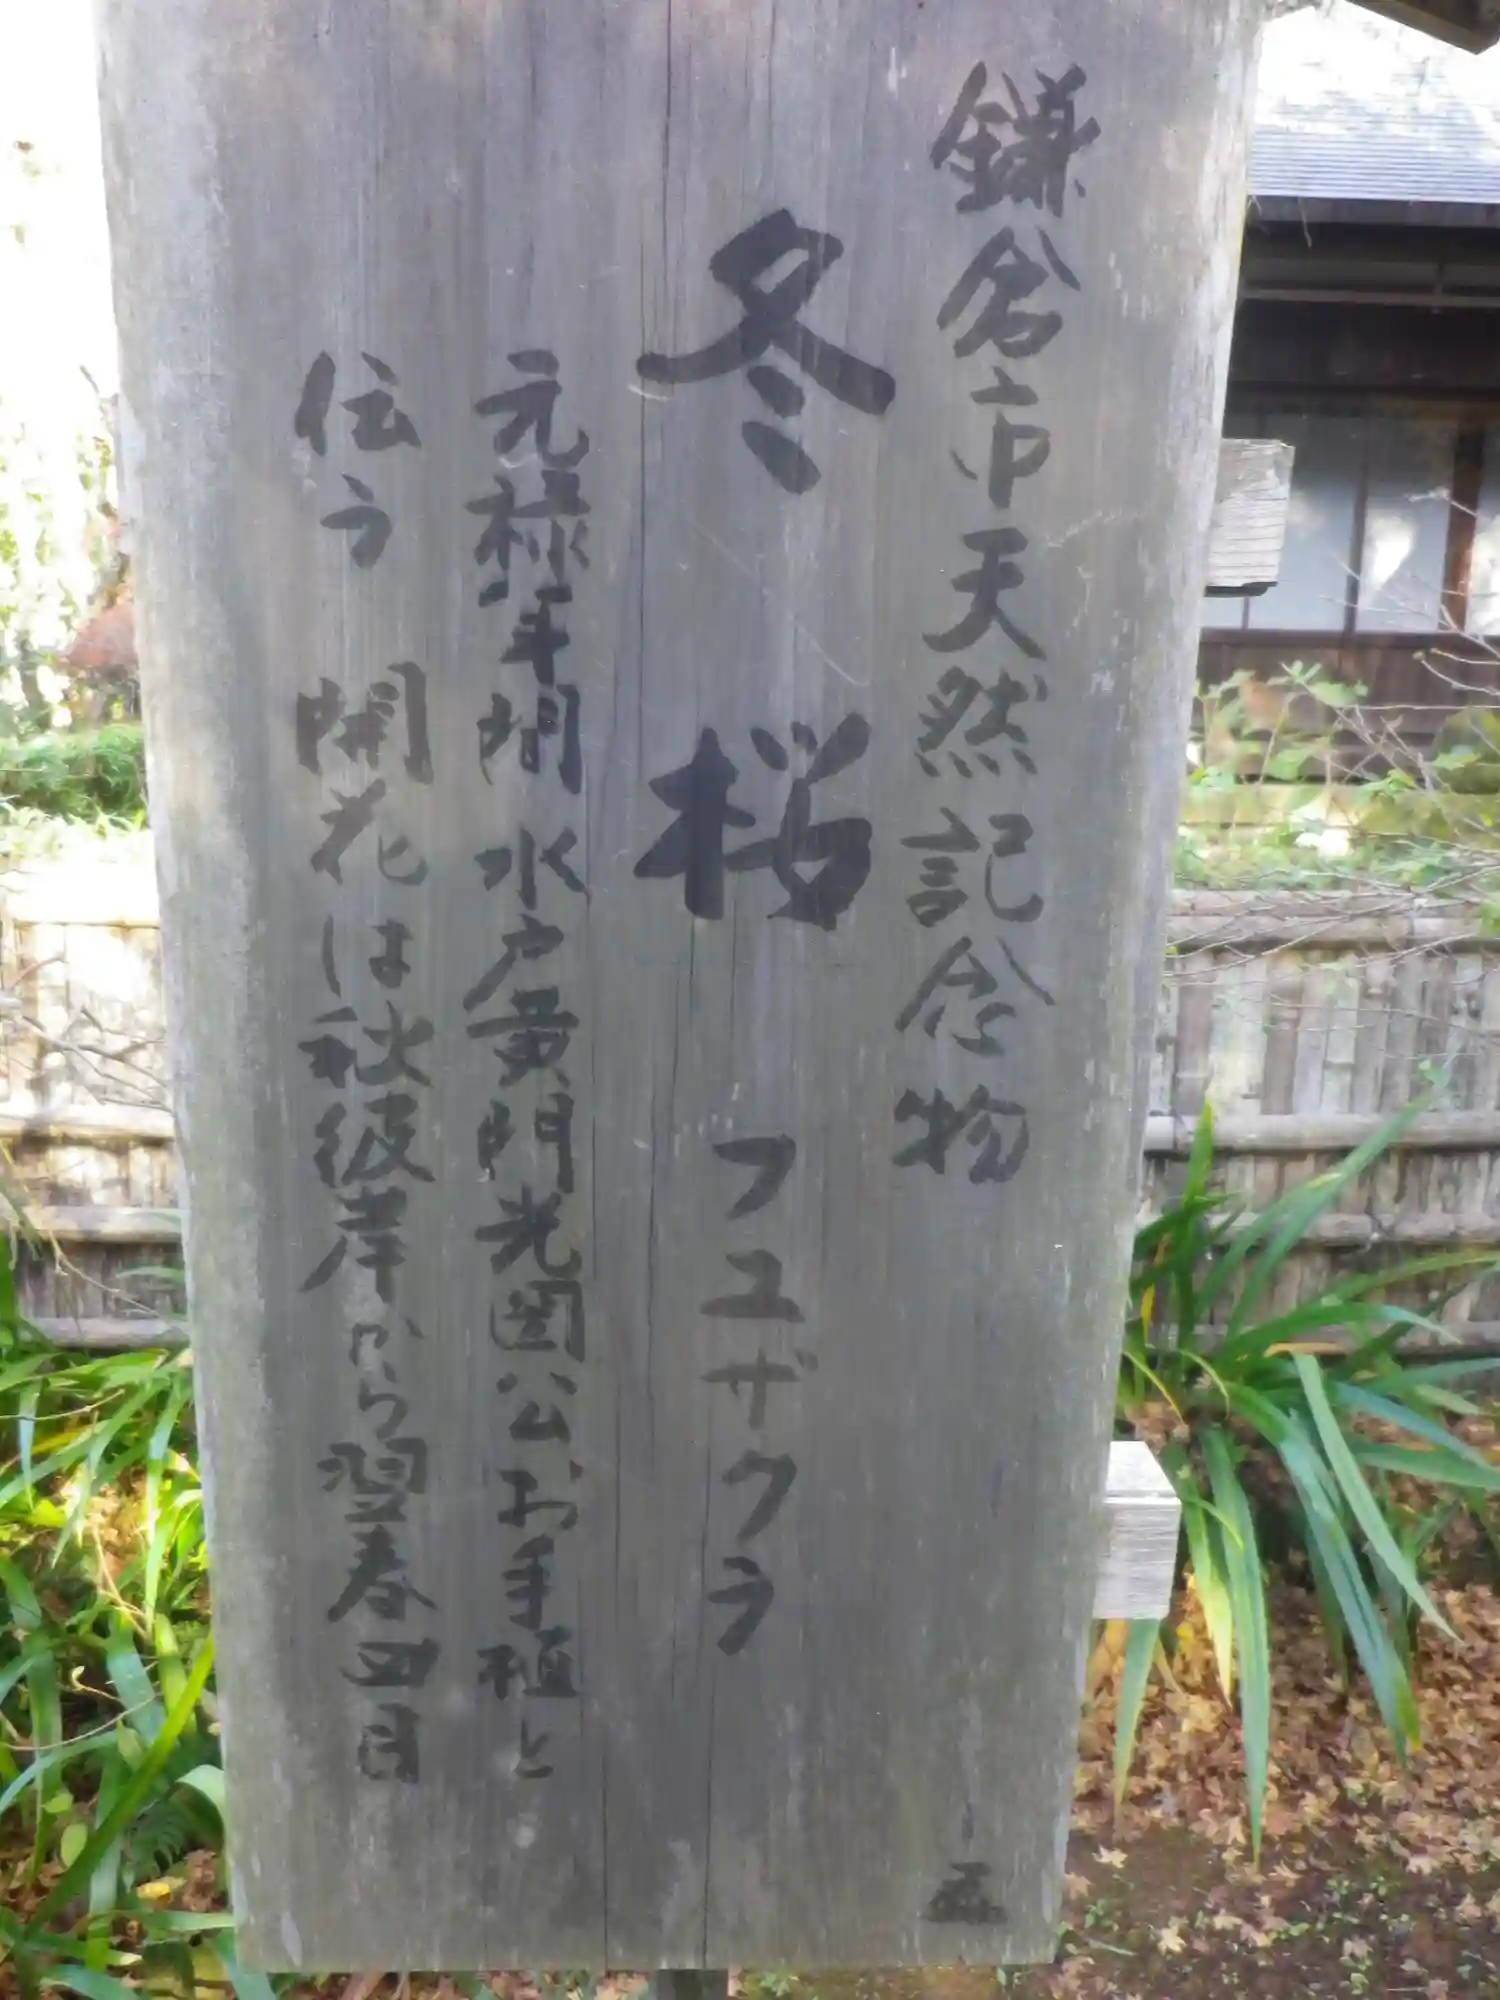 鎌倉市天然記念物
冬桜 フユザクラ
元禄年間 水戸黄門光圀公お手植と
伝う 開花は秋彼岸から翌春四月